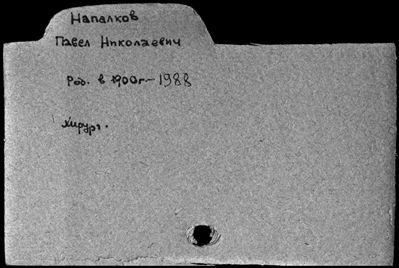 Напалков
Павел Николаевич
Род. в 1900г.-1988
хирург.